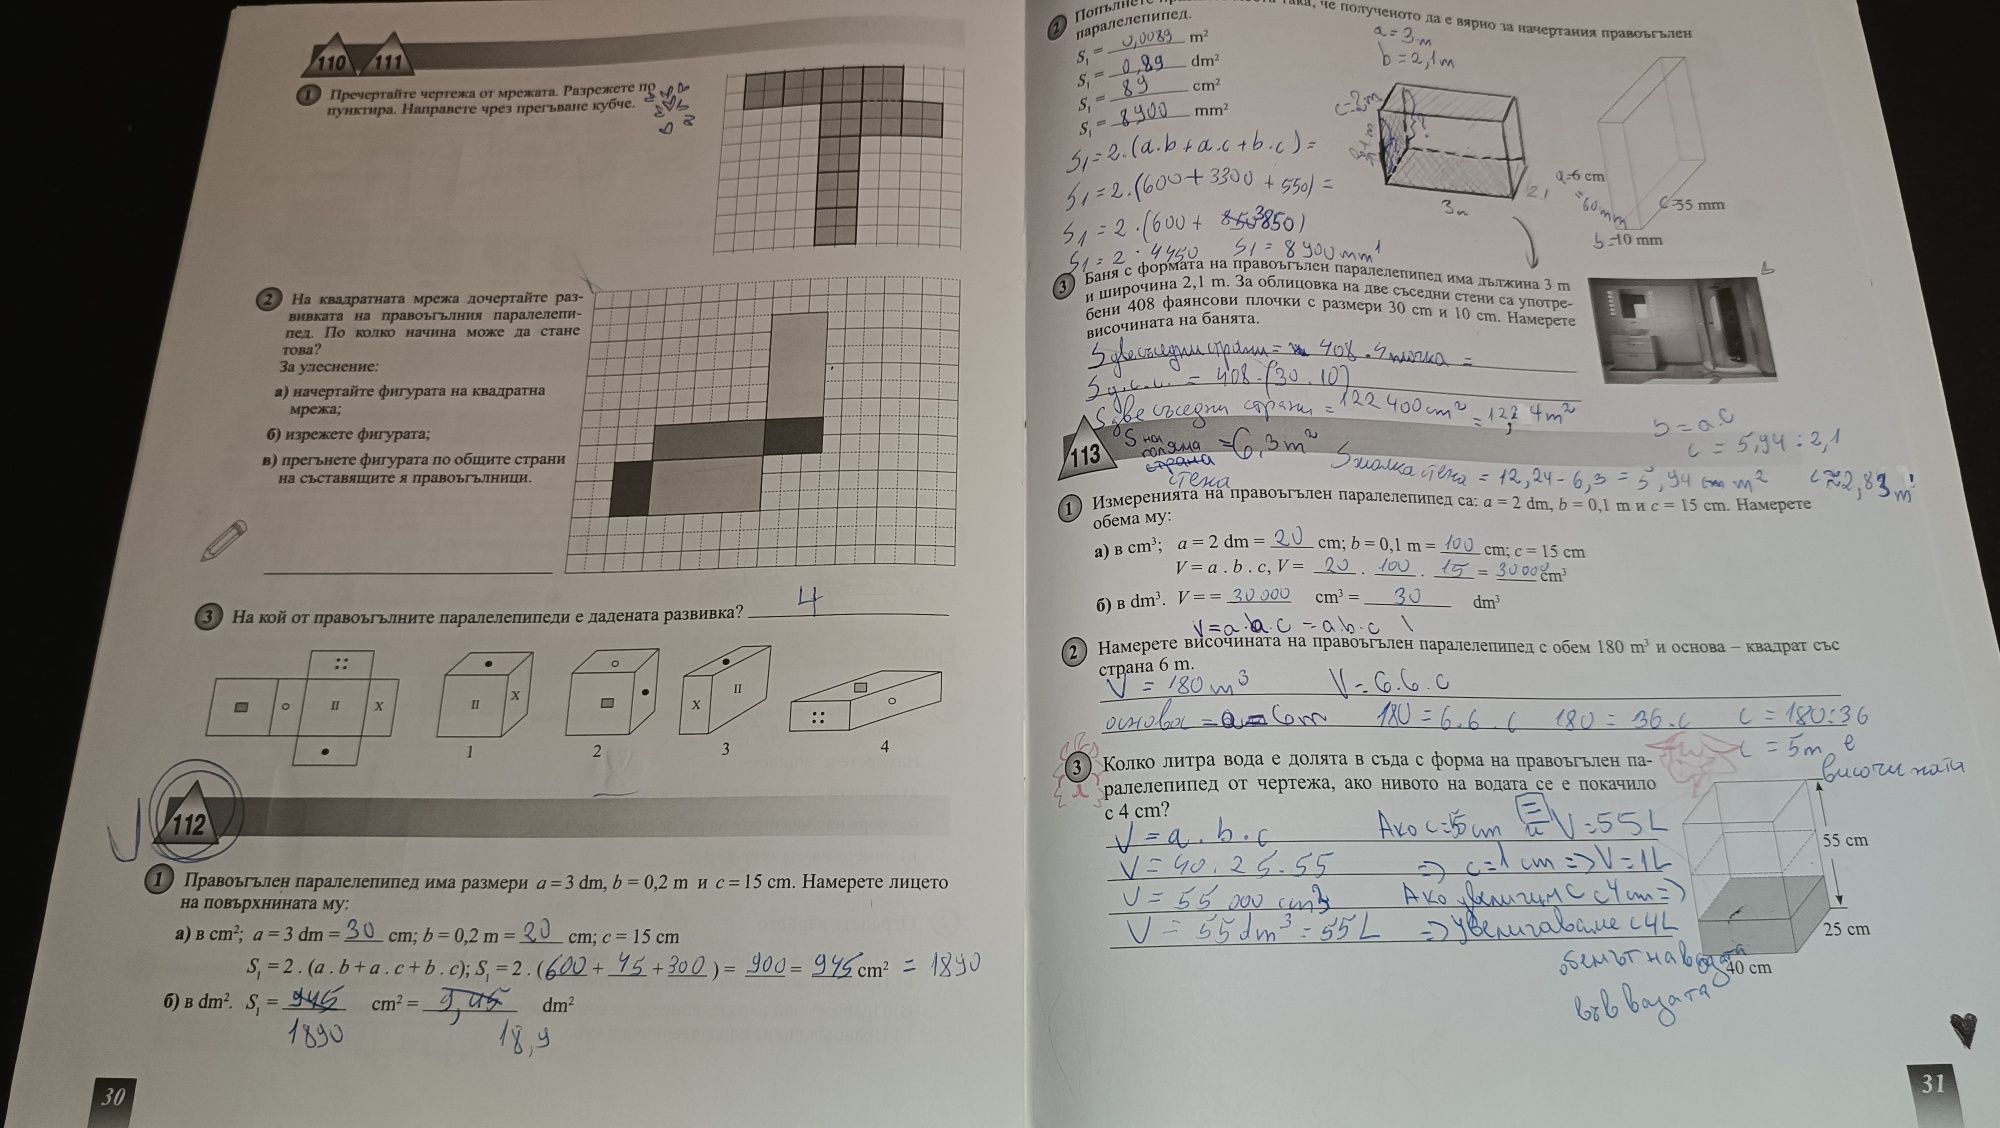 110 111
1 Пречертайте чертежа от мрежата. Разрежете по
пунктира. Направете чрез прегъване кубче.
2 На квадратната мрежа дочертайте раз-
вивката на правоъгълния паралелепи-
пед. По колко начина може да стане
това?
За улеснение:
а) начертайте фигурата на квадратна
мрежа;
б) изрежете фигурата;
в) прегънете фигурата по общите страни
на съставящите я правоъгълници.
3 На кой от правоъгълните паралелепипеди е дадената развивка? 4
II X
II X
X II
1 2 3 4
112
1 Правоъгълен паралелепипед има размери a = 3 dm, b = 0,2 m и c = 15 cm. Намерете лицето
на повърхнината му:
а) в cm²; a = 3 dm = 30 cm; b = 0,2 m = 20 cm; c = 15 cm
S₁ = 2 . (a . b + a . c + b . c); S₁ = 2 . (600 + 45 + 300) = 900 = 945 cm² = 1890
б) в dm². S₁ = 945 cm² = 9,45 dm²
1890 18,9
30
2 Попълнете така, че полученото да е вярно за начертания правоъгълен
паралелепипед.
S₁ = 0,0089 m²
S₁ = 0,89 dm²
S₁ = 89 cm²
S₁ = 8900 mm²
S₁ = 2.(a.b + a.c + b.c) =
S₁ = 2.(600 + 3300 + 550) =
S₁ = 2.(600 + 3850)
S₁ = 2 . 4450 S₁ = 8900 mm²
a = 3 m
b = 2,1 m
3m
2,1
a=6 cm
=60 mm
c=55 mm
b=10 mm
3 Баня с формата на правоъгълен паралелепипед има дължина 3 m
и широчина 2,1 m. За облицовка на две съседни стени са употре-
бени 408 фаянсови плочки с размери 30 cm и 10 cm. Намерете
височината на банята.
S две съседни страни = 408 . S плочка =
S д.с.с. = 408.(30.10)
S две съседни страни = 122 400 cm² = 12,24 m²
113
S на голяма страна стена = 6,3 m²
S малка стена = 12,24 - 6,3 = 5,94 m²
S = a.c
c = 5,94 : 2,1
c ≈ 2,83 m
1 Измеренията на правоъгълен паралелепипед са: a = 2 dm, b = 0,1 m и c = 15 cm. Намерете
обема му:
а) в cm³; a = 2 dm = 20 cm; b = 0,1 m = 100 cm; c = 15 cm
V = a . b . c, V = 20 . 100 . 15 = 30000 cm³
б) в dm³. V = = 30000 cm³ = 30 dm³
V = a.a.c = a.b.c
2 Намерете височината на правоъгълен паралелепипед с обем 180 m³ и основа – квадрат със
страна 6 m.
V = 180 m³ V = 6.6.c
основа = a = 6m 180 = 6.6.c 180 = 36.c c = 180:36
c = 5m е
височината
3 Колко литра вода е долята в съда с форма на правоъгълен па-
ралелепипед от чертежа, ако нивото на водата се е покачило
с 4 cm?
V = a . b . c Ако c = 55 cm и V = 55 L
V = 40 . 25 . 55 => c = 1 cm => V = 1L
V = 55 000 cm³ Ако увеличим c с 4 cm =>
V = 55 dm³ = 55 L => увеличаваме с 4L
обемът на водата
във вазата
55 cm
25 cm
40 cm
31